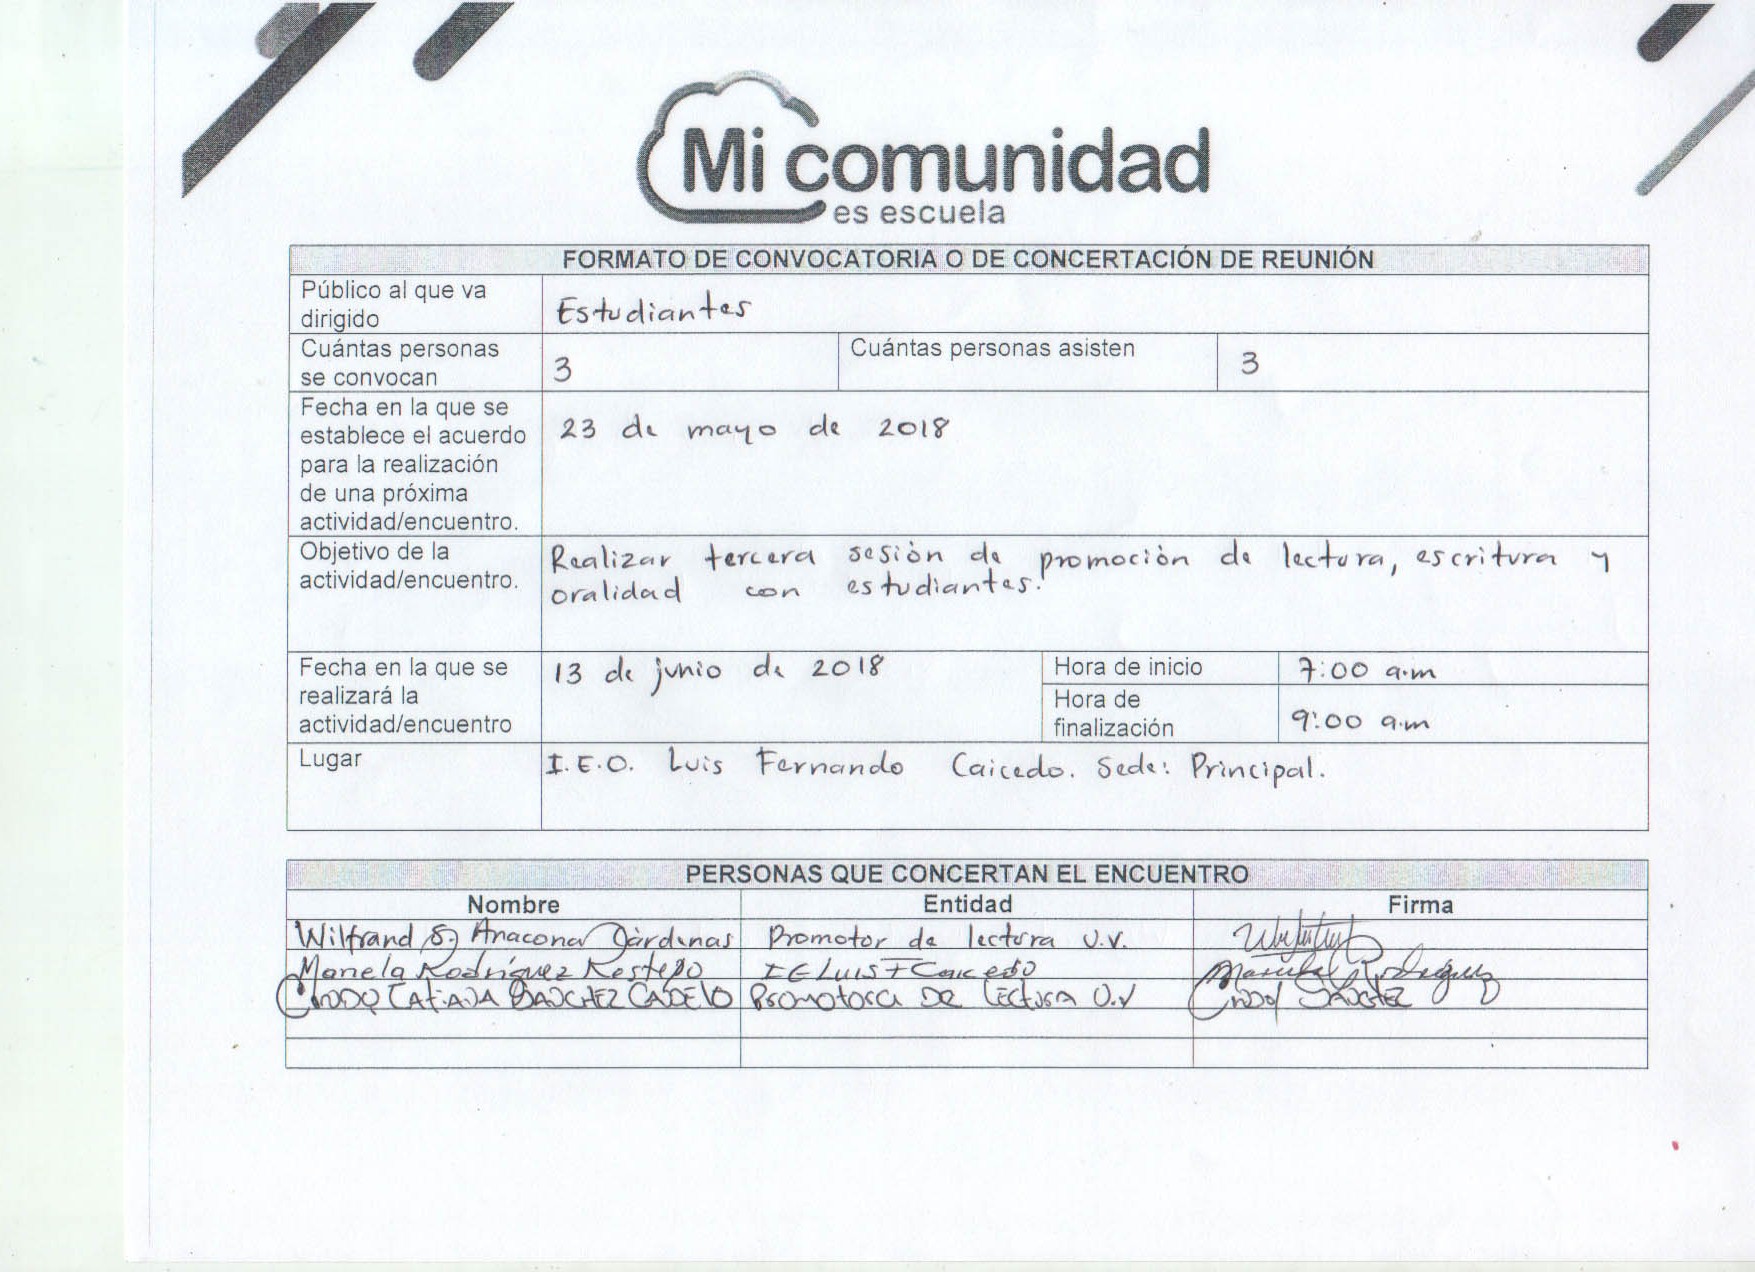 Mi comunidad
es escuela
FORMATO DE CONVOCATORIA O DE CONCERTACIÓN DE REUNIÓN
Público al que va
dirigido
Estudiantes
Cuántas personas
se convocan
3
Cuántas personas asisten
3
Fecha en la que se
establece el acuerdo
para la realización
de una próxima
actividad/encuentro.
23 de mayo de 2018
Objetivo de la
actividad/encuentro.
Realizar tercera sesión de promoción de lectura, escritura y
oralidad con estudiantes.
Fecha en la que se
realizará la
actividad/encuentro
13 de junio de 2018
Hora de inicio
7:00 a.m
Hora de
finalización
9:00 a.m
Lugar
I.E.O. Luis Fernando Caicedo. Sede: Principal.
PERSONAS QUE CONCERTAN EL ENCUENTRO
Nombre Entidad Firma
Wilfrand S. Anacona Cárdenas Promotor de lectura U.V.
Rodríguez Restrepo I E Luis F Caicedo Rodríguez
SANCHEZ Promotora DE Lectura U.V SANCHEZ